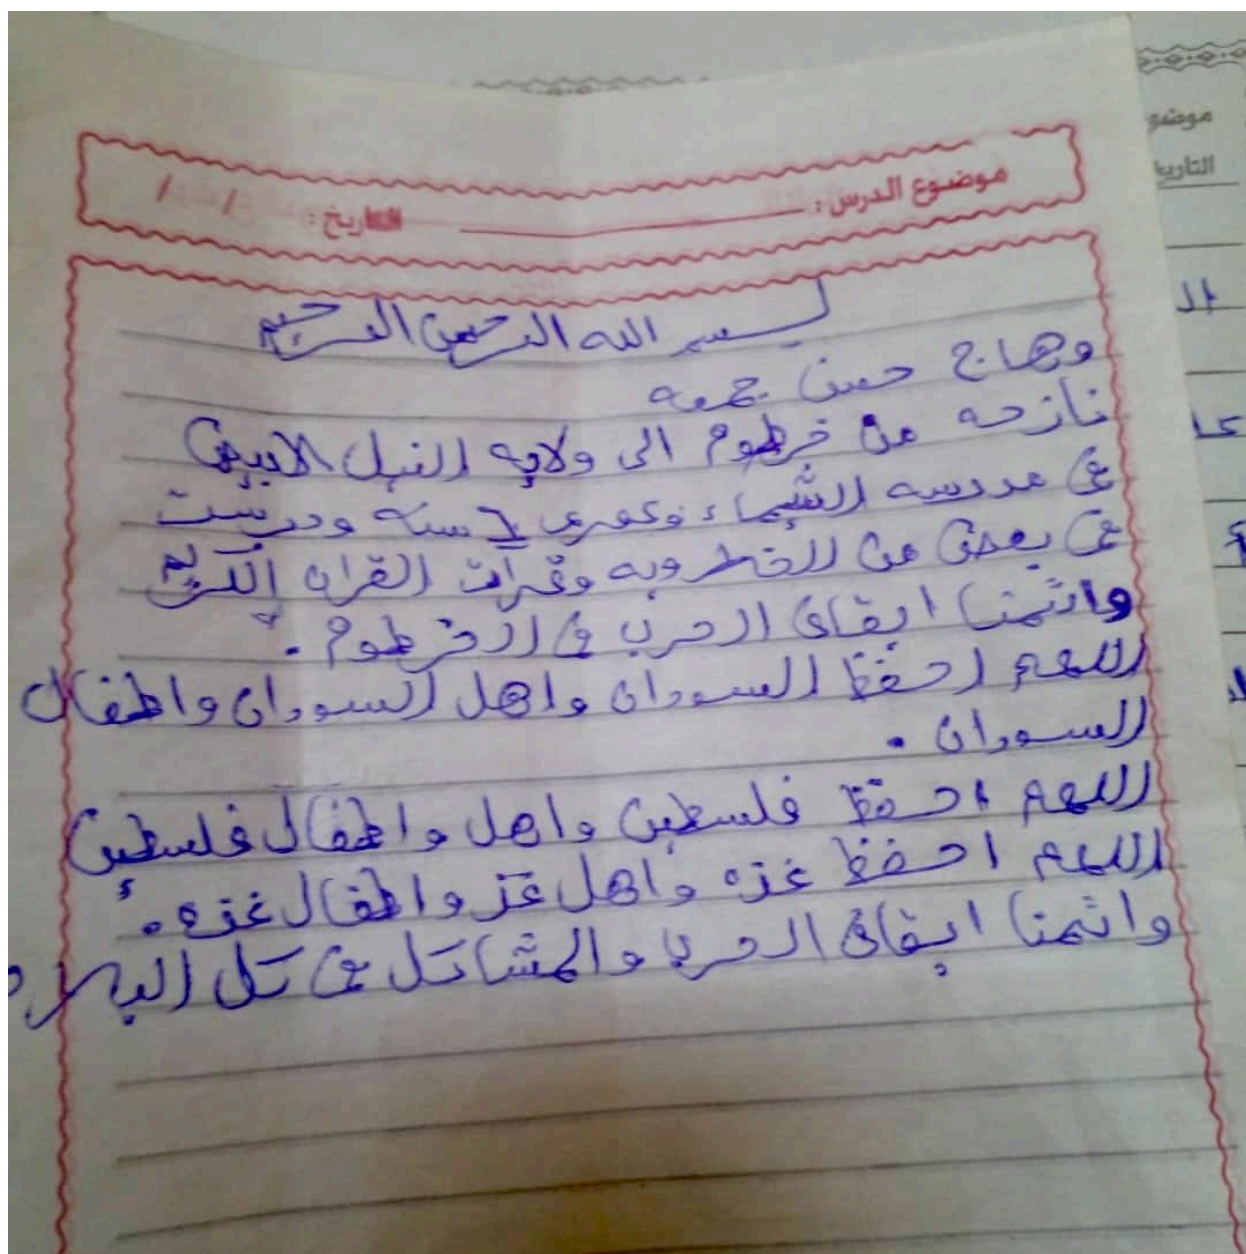 موضوع الدرس : التاريخ : / /
بسم الله الرحمن الرحيم
وهاج حسن جمعه
نازحه من خرطوم الى ولايه النيل الابيض
في مدرسه الشيماء وعمري سنه ودرست
في بعض من الخطروبه وقرات القران الكريم
واتمنا ايقاف الحرب في الخرطوم .
اللهم احفظ السودان واهل السودان واطفال
السودان .
اللهم احفظ فلسطين واهل واطفال فلسطين
اللهم احفظ غزه واهل غز واطفال غزه .
واتمنا ايقاف الحرب والمشاكل في كل البلاد
موضو
التاريخ